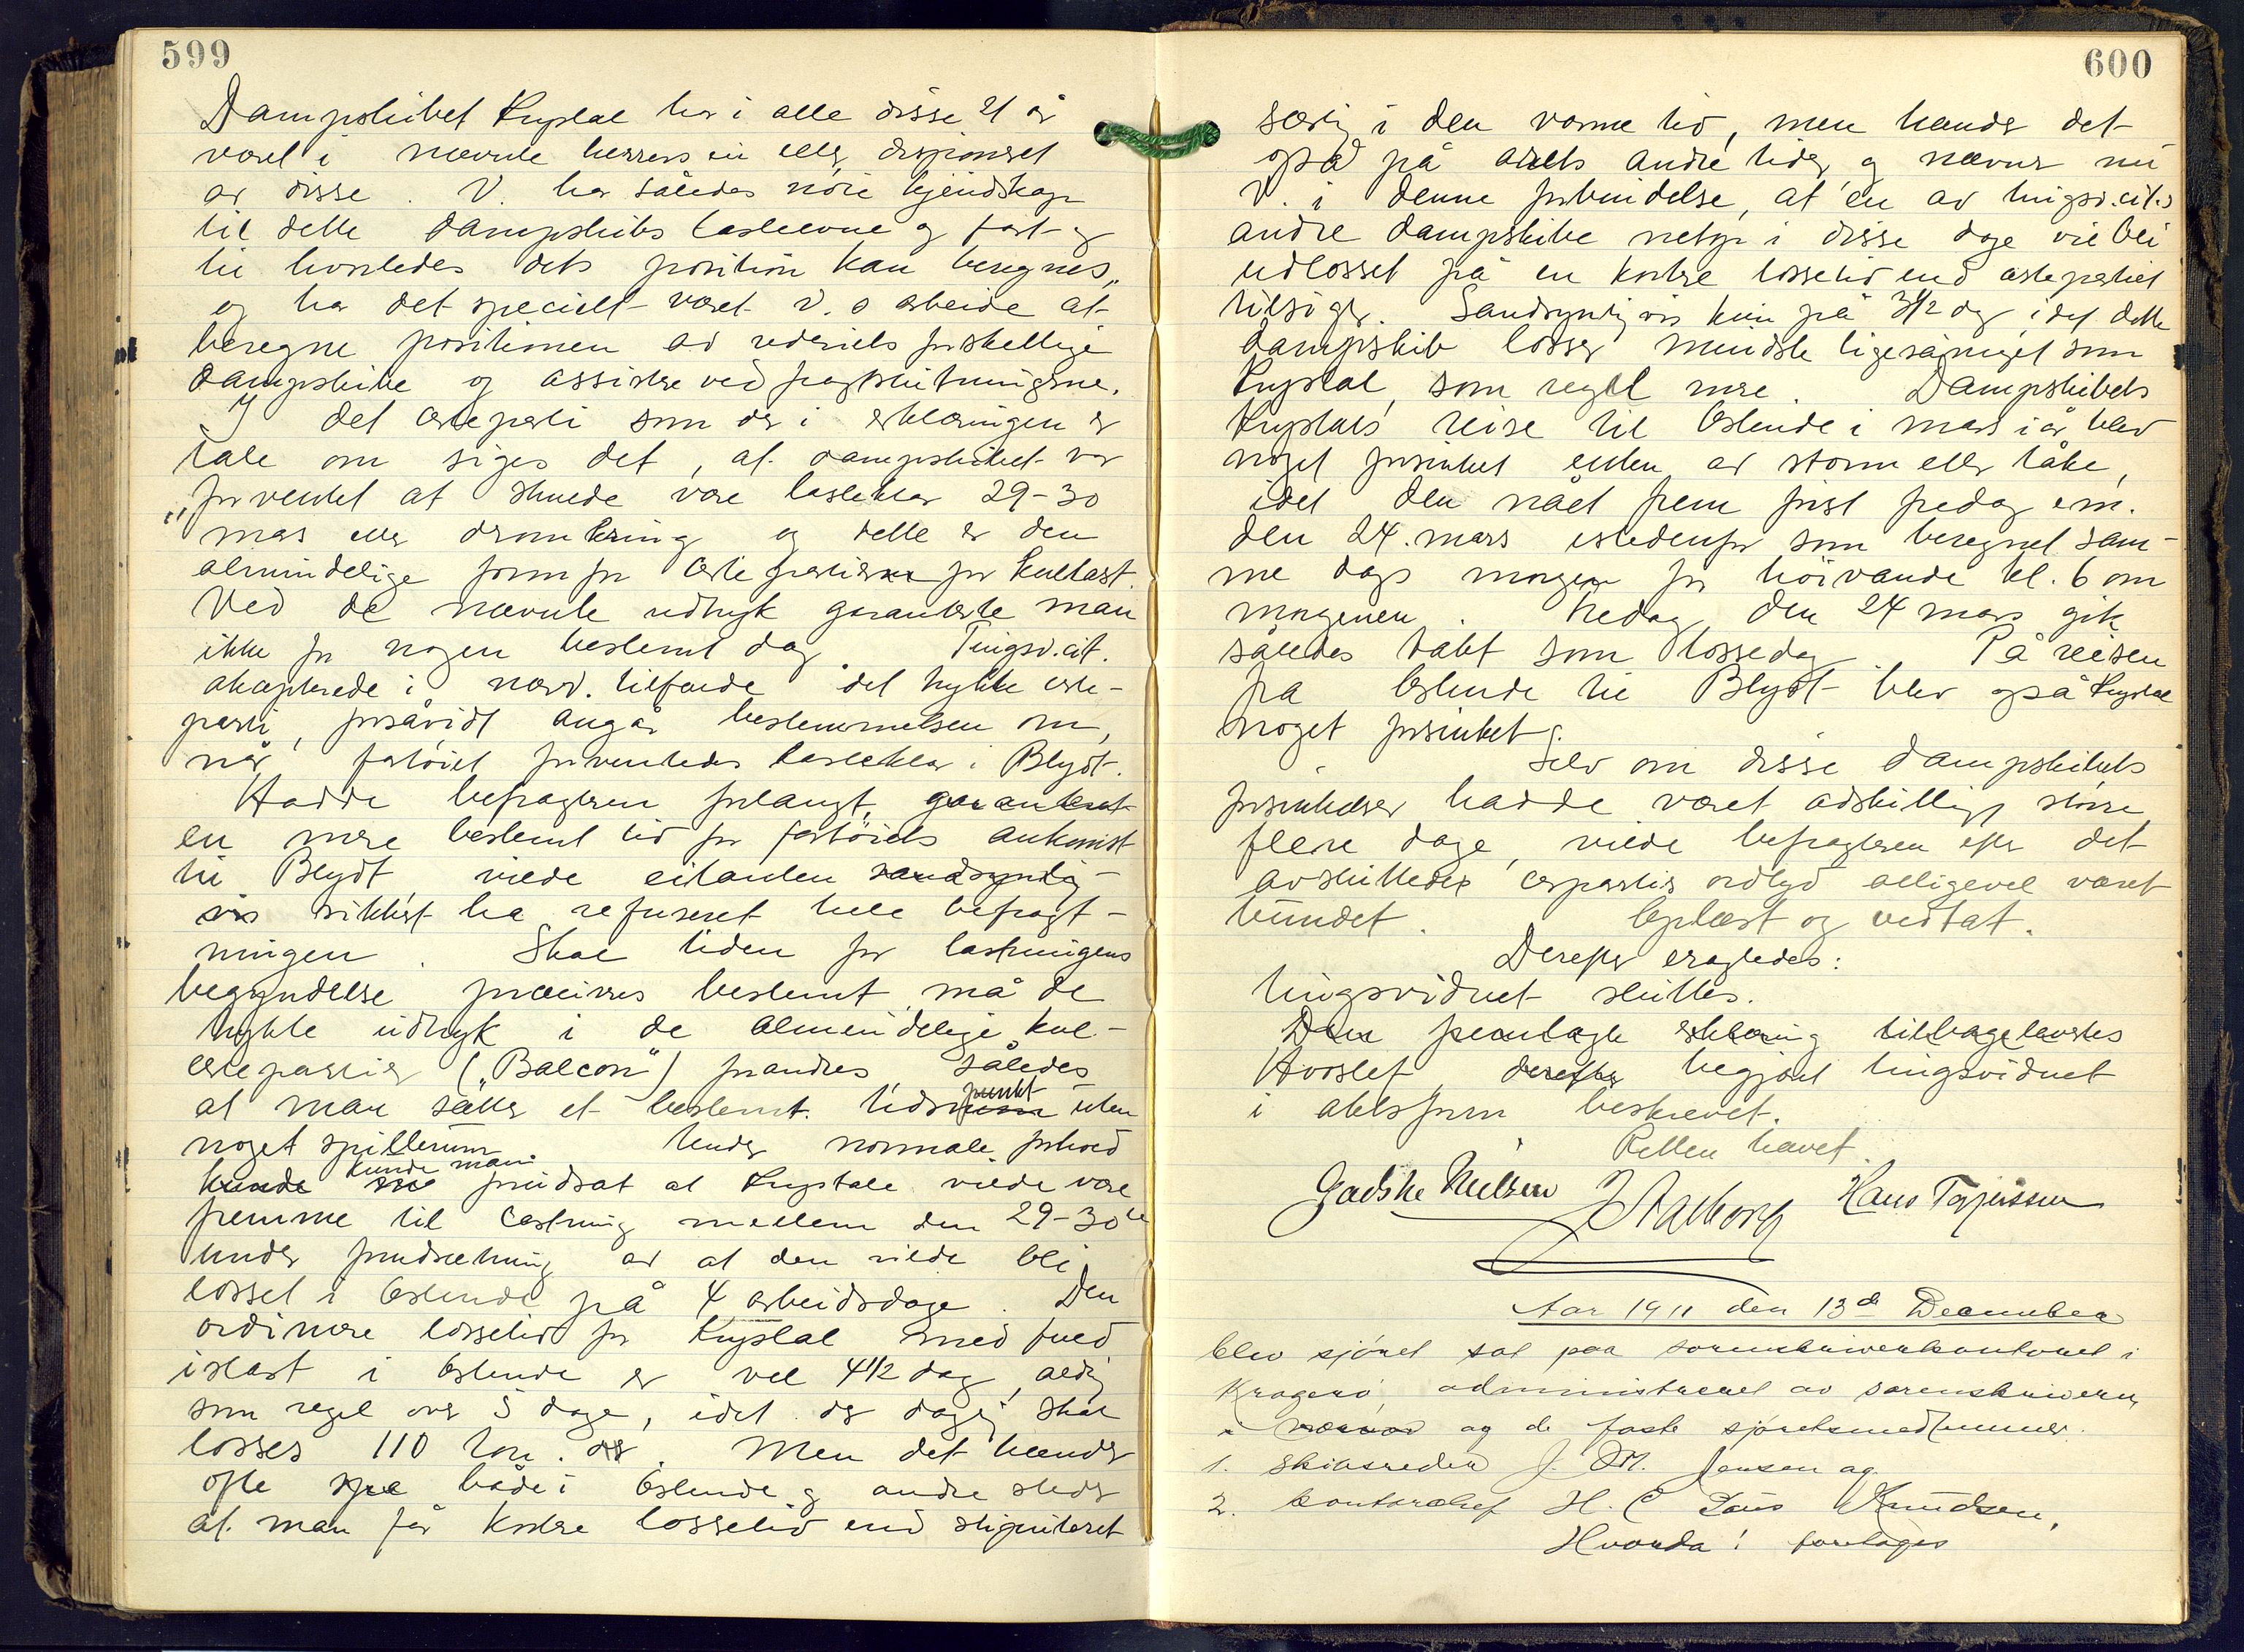 599
Dampskibet Krystal har i alle disse 21 år
været i nævnte herrers eie eller disponeret
av disse. V. har således nöie kjendskap
til dette dampskibs lasteevne og fart og
til hvorledes dets position kan beregnes,
og har det specielt været v.s arbeide at
beregne positionen av rederiets forskellige
dampskibe og assistere ved fragtslutningerne.
I det certeparti som der i erklæringen er
tale om siges det, at dampskibet var
"forventet at skulde være lasteklar 29-30
mars eller deromkring og dette er den
almindelige form for certepartier for kullast.
Ved de nævnte udtryk garanterte man
ikke for nogen bestemt dag. Tingsv.cit.
akcepterede i nærv. tilfælde det trykte certe-
parti, forsåvidt angår bestemmelsen om,
når fartöiet forventedes lasteklar i Blydt.
Hadde befragteren forlangt garanteret
en mere bestemt tid for fartöiets ankomst
til Blydt, vilde citanten sandsynlig-
vis sikkert ha refuseret hele befragt-
ningen. Skal tiden for lastningens
begyndelse præcisres bestemt, må de
trykte udtryk i de almindelige kul-
certepartier ("Balcon") forandres således
at man sætter et bestemt tidspunkt uten
noget spillerum. Under normale forhold
kunde man forudsat at Krystal vilde være
fremme til lastning mellem den 29-30te
under forudsætning av at den vilde bli
losset i Ostende på 4 arbeidsdage. Den
ordinære lossetid for Krystal med fuld
islast i Ostende er vel 4 1/2 dag, aldrig
som regel over 5 dage, idet der daglig skal
losses 110 ton. Men det hænder
ofte både i Ostende og andre steder
at man får kortere lossetid end stipuleret
600
særlig i den varme tid, men hænder det
også på årets andre tider, og nævner nu
V. i denne forbindelse, at en av tingsv.cit.s
andre dampskibe netop i disse dage vil bli
udlosset på en kortere lossetid end certepartiet
tilsiger. Sandsynligvis kun på 3 1/2 dag, idet dette
dampskib losser mindst ligesåmeget som
Krystal, som regel mere. Dampskibets
Krystals reise til Ostende i mars i år blev
noget forsinket enten av storm eller tåke,
idet den nået frem först fredag em.
den 24. mars istedenfor som beregnet sam-
me dags morgen for höivande kl. 6 om
morgenen. Fredag den 24 mars gik
således tabt som lossedag. På reisen
fra Ostende til Blydt blev også Krystal
noget forsinket.
Selv om disse dampskibets
forsinkelser hadde været adskillig större,
flere dage, vilde befragteren efter det
avsluttede certepartis ordlyd alligevel været
bundet. Oplæst og vedtat.
Derefter eragtedes:
Tingsvidnet sluttes.
Den fremlagte erklæring tilbagelevertes
Horslef, derefter begjært tingsvidnet
i aktsform beskrevet.
Retten hævet.
Gadske Nielsen J Aalborg Hans Terjesen
Aar 1911 den 13de December
blev sjöret sat paa sorenskriverkontoret i
Kragerö, administreret av sorenskriveren
og de faste sjöretsmedlemmer.
1. Skibsreder J. M. Jensen og
2. kontorchef H. C Paus Knudsen.
Hvorda: foretages